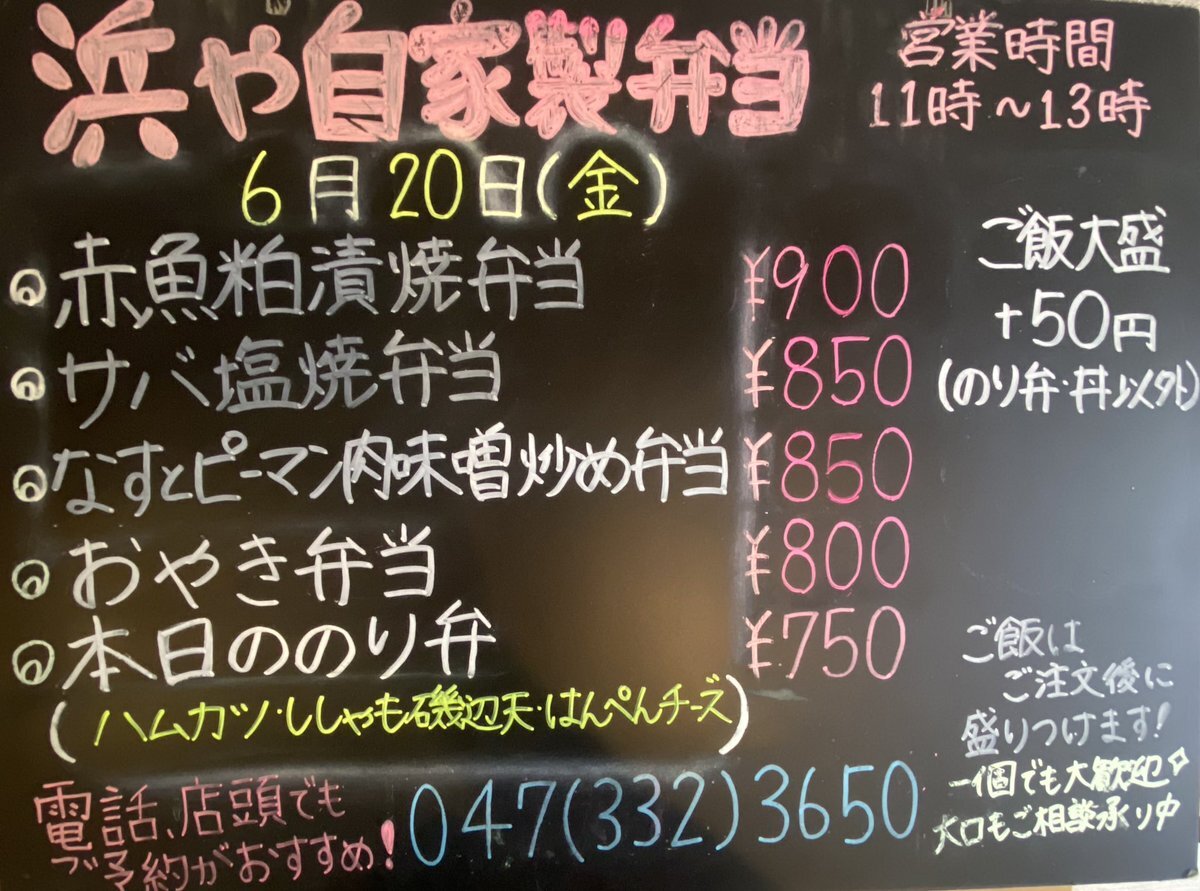 浜や自家製弁当
営業時間
11時～13時
6月20日(金)
赤魚粕漬焼弁当 ¥900
サバ塩焼弁当 ¥850
なすとピーマン肉味噌炒め弁当 ¥850
おやき弁当 ¥800
本日ののり弁 ¥750
(ハムカツ・ししゃも磯辺天・はんぺんチーズ)
ご飯大盛
+50円
(のり弁・丼以外)
ご飯は
ご注文後に
盛りつけます!
一個でも大歓迎
大口もご相談承り中
電話、店頭でも
ご予約がおすすめ!
047(332)3650